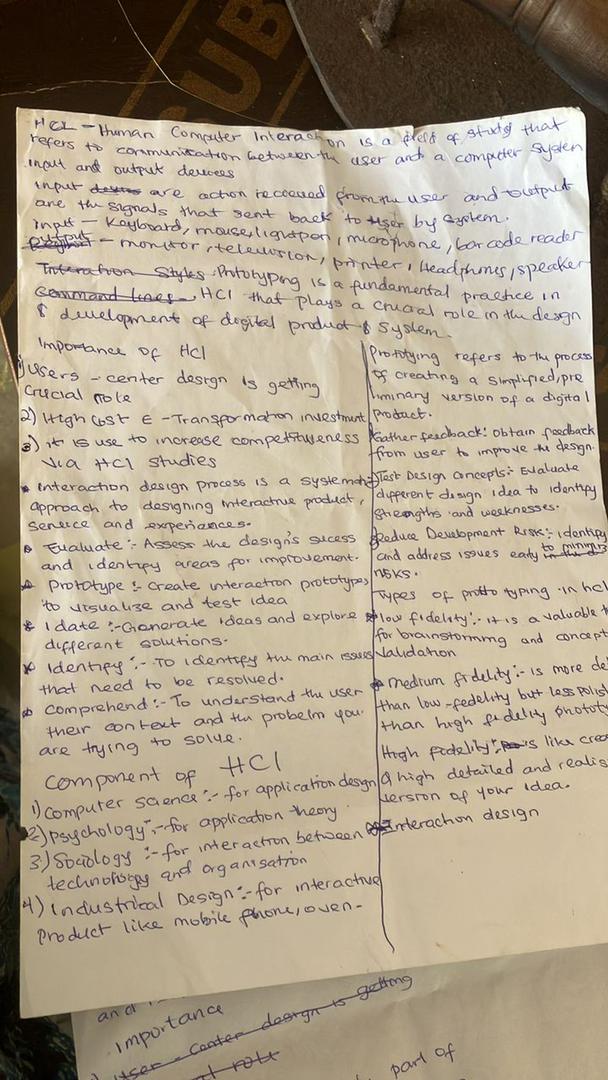 SUB
HCI - Human Computer Interaction is a field of study that
refers to communication between the user and a computer system
input and output devices
input are action received from the user and output
are the signals that sent back to user by system.
input - Keyboard, mouse, lightpen, microphone, bar code reader
output - monitor, television, printer, Headphones, speaker
Interation Styles. Prototyping is a fundamental practice in
command lines HCI that plays a crucial role in the design
& development of digital product & system.
Importance of HCI
1) Users - center design is getting
crucial role
2) High cost E - Transformation investment
3) it is use to increase competitiveness
via HCI studies
* Interaction design process is a systematic
approach to designing interactive product,
service and experiences.
* Evaluate :- Assess the design's sucess
and identify areas for improvement.
* Prototype :- Create interaction prototypes
to visualize and test idea
* Idate :- Generate ideas and explore
different solutions.
* Identify :- To identify the main issues
that need to be resolved.
* Comprehend :- To understand the user
their context and the probelm you
are trying to solve.
Component of HCI
1) Computer science :- for application design
2) Psychology :- for application theory
3) Sociology :- for interaction between
technology and organisation
4) Industrical Design :- for interactive
product like mobile phone, oven -
Prototying refers to the process
of creating a simplified, pre
liminary version of a digital
product.
Gather feedback: obtain feedback
from user to improve the design.
Test Design Concepts :- Evaluate
different design idea to identify
strengths and weaknesses.
Reduce Development Risk :- identify
and address issues early to minimiz
risks.
Types of proto typing in hci
* low fidelity :- it is a valuable t
for brainstorming and concept
Validation
* Medium fidelity :- is more de
than low-fedelity but less polis
than high fidelity phototy
High fedelity :- is like crea
a high detailed and realis
version of your idea.
Interaction design
and
importance
User - Center design is getting
role
part of